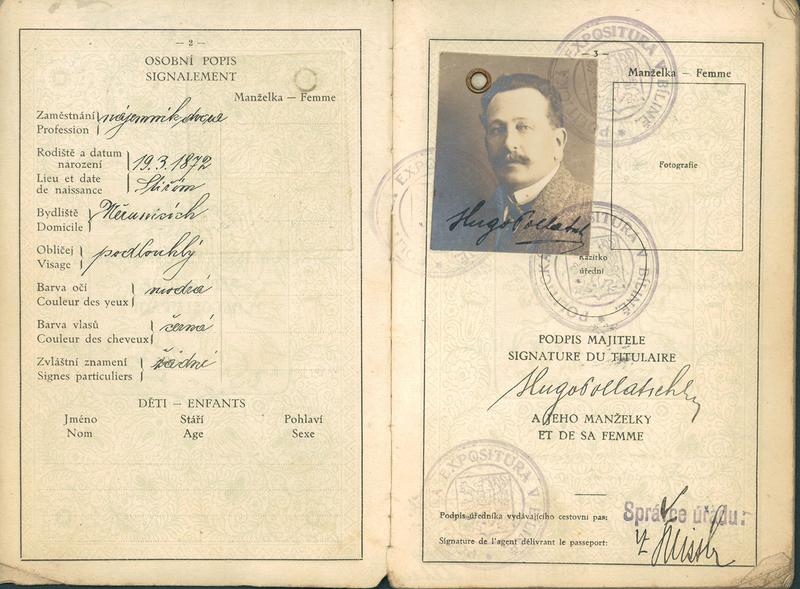 — 2 —
OSOBNÍ POPIS
SIGNALEMENT
Manželka — Femme
Zaměstnání
Profession
nájemník dvora
Rodiště a datum
narození
19.3.1872
Lieu et date
de naissance
Bydliště
Domicile
Měrunicích
Obličej
Visage
podlouhlý
Barva očí
Couleur des yeux
modrá
Barva vlasů
Couleur des cheveux
černá
Zvláštní znamení
Signes particuliers
žádné
DĚTI — ENFANTS
Jméno Stáří Pohlaví
Nom Age Sexe
— 3 —
POLITICKÁ EXPOSITURA V BÍLINĚ
Manželka — Femme
Fotografie
Hugo Pollatschek
POLITICKÁ EXPOSITURA V BÍLINĚ
Razítko
úřední
PODPIS MAJITELE
SIGNATURE DU TITULAIRE
Hugo Pollatschek
A JEHO MANŽELKY
ET DE SA FEMME
EXPOSITURA V BÍLINĚ
Podpis úředníka vydávajícího cestovní pas:
Správce úřadu:
Signature de l'agent délivrant le passeport: